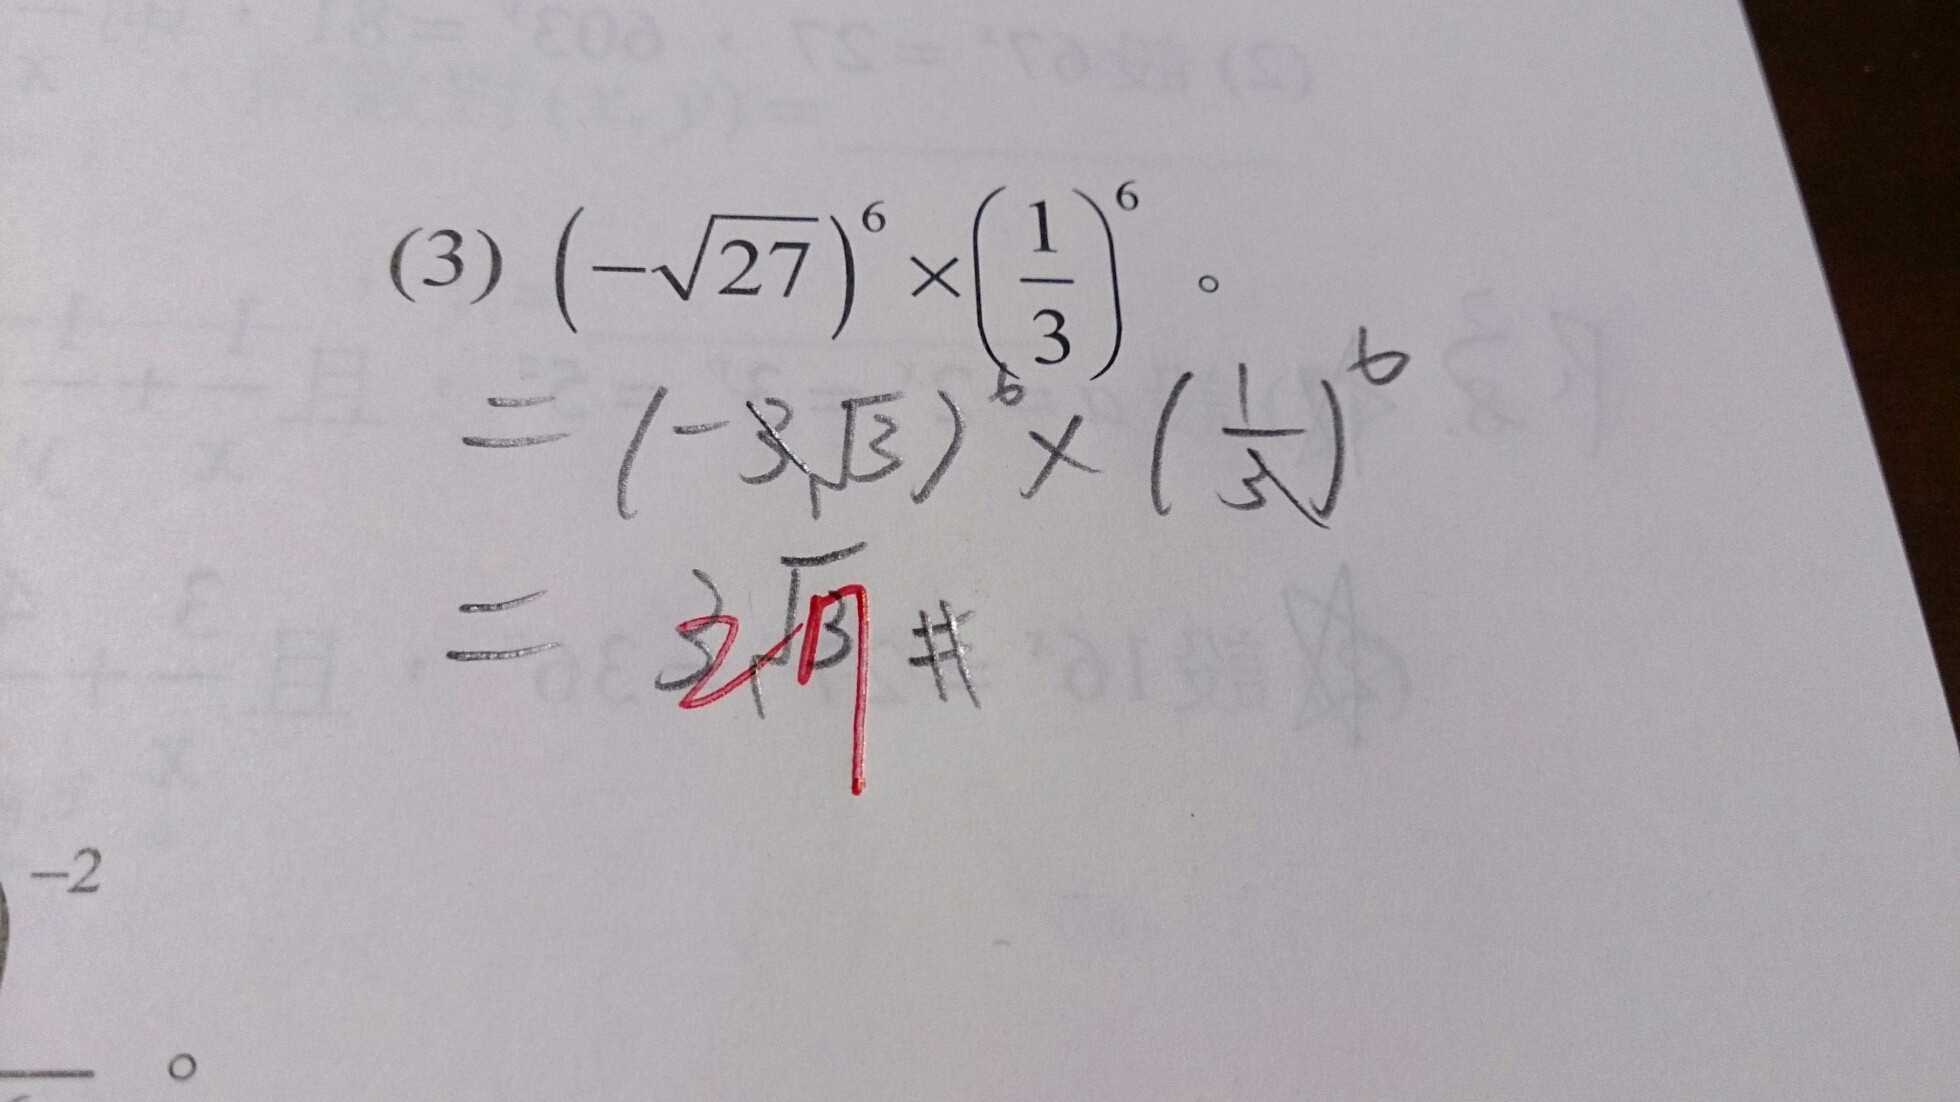 (3) (-√27)^6 × (1/3)^6 。
= (-3√3)^6 × (1/3)^6
= 3√3 #
27
-2
。